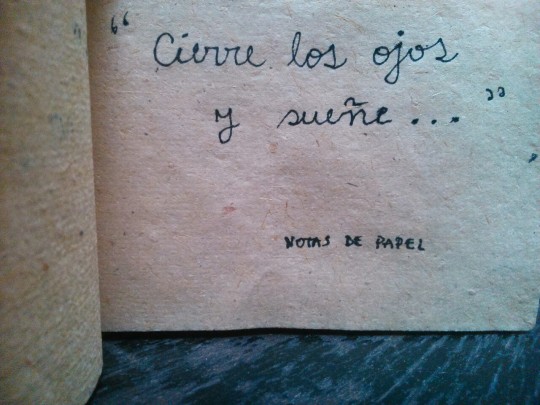 “Cierre los ojos
y sueñe...”
NOTAS DE PAPEL